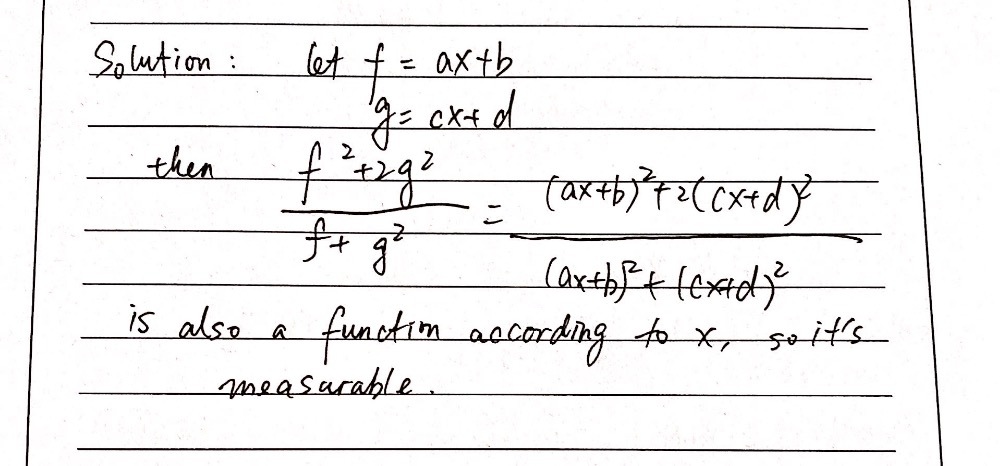 Solution : let f = ax+b
g = cx+d
then f²+2g² / f+g² = (ax+b)²+2(cx+d)² / (ax+b)²+(cx+d)²
is also a function according to x, so it's
measurable.